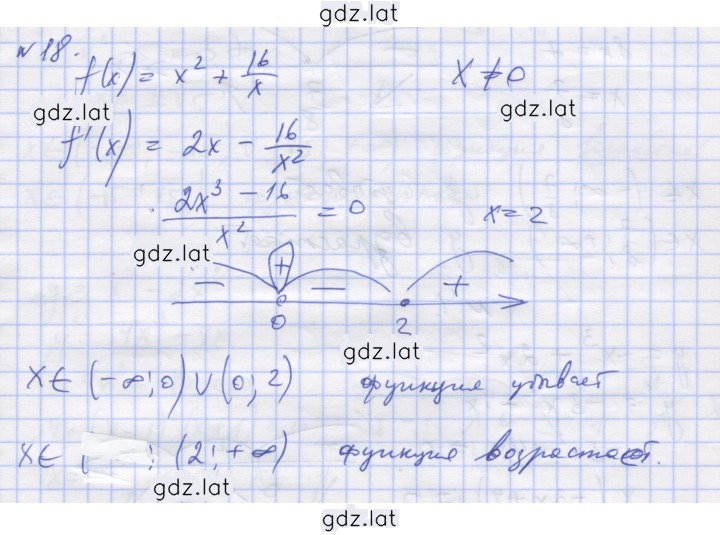 gdz.lat
№18.
f(x) = x² + 16/x x ≠ 0
gdz.lat gdz.lat
f'(x) = 2x - 16/x²
(2x³ - 16)/x² = 0 x = 2
gdz.lat
- + - +
0 2
gdz.lat
x∈ (-∞; 0) ∪ (0; 2) функция убывает
x∈ ; (2; +∞) функция возрастает.
gdz.lat
gdz.lat